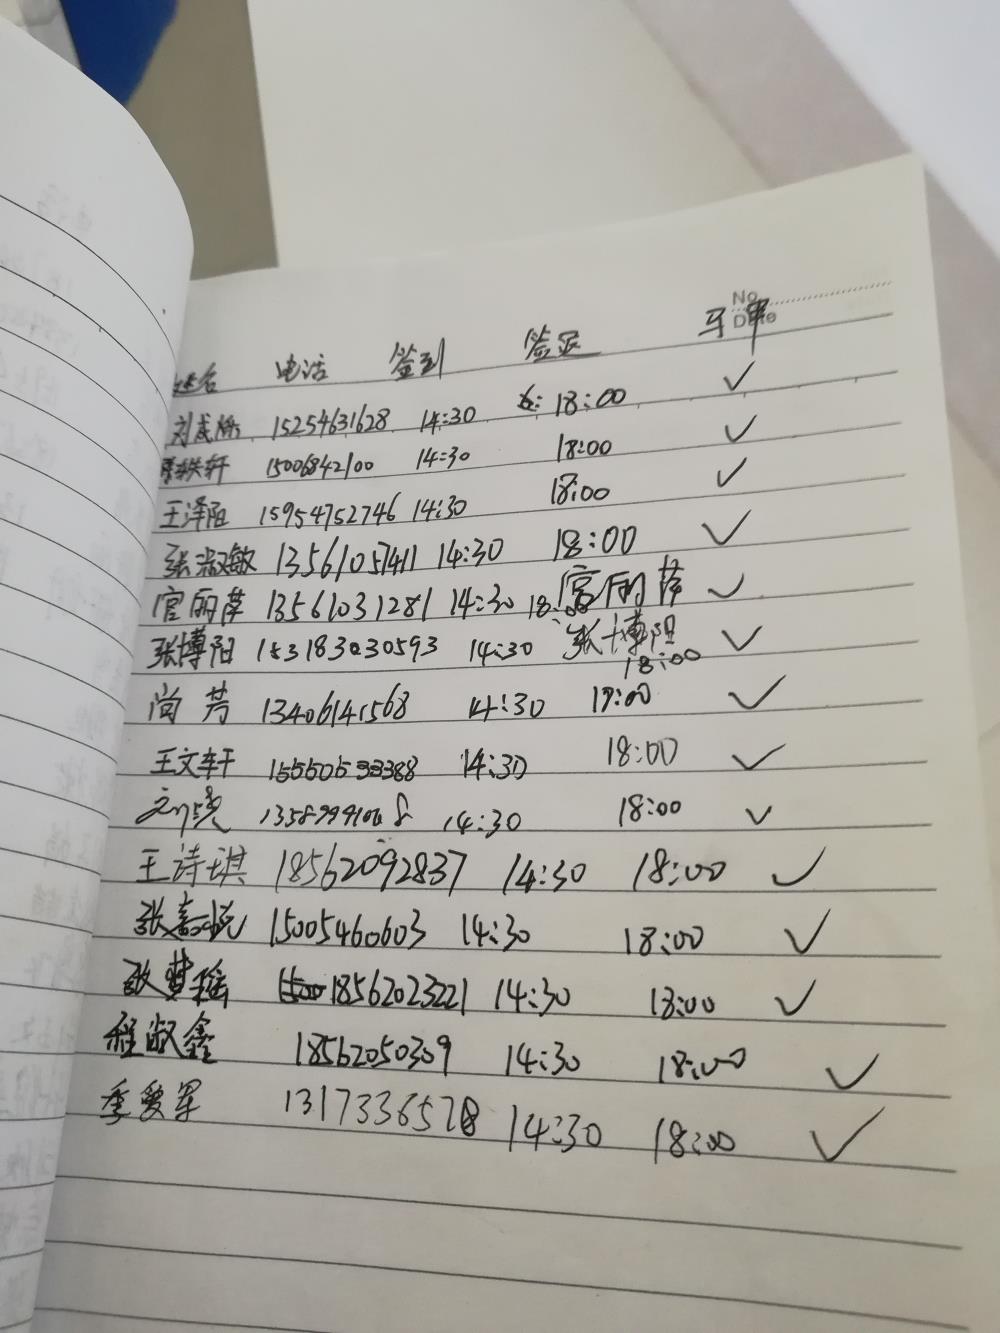 No
Date
姓名 电话 签到 签退 马甲
刘成 15254631628 14:30 18:00 ✓
轶轩 15006842100 14:30 18:00 ✓
王泽阳 15954752746 14:30 18:00 ✓
张淑敏 13561057411 14:30 18:00 ✓
官丽萍 13561031281 14:30 18:00 官丽萍 ✓
张博阳 153183030593 14:30 张博阳 18:00 ✓
尚芳 13406141568 14:30 17:00 ✓
王文轩 14:30 18:00 ✓
刘晓 14:30 18:00 ✓
王诗琪 18562092837 14:30 18:00 ✓
张嘉悦 15005460603 14:30 18:00 ✓
张梦瑶 18562023221 14:30 18:00 ✓
程淑鑫 18562050309 14:30 18:00 ✓
季爱军 14:30 18:00 ✓